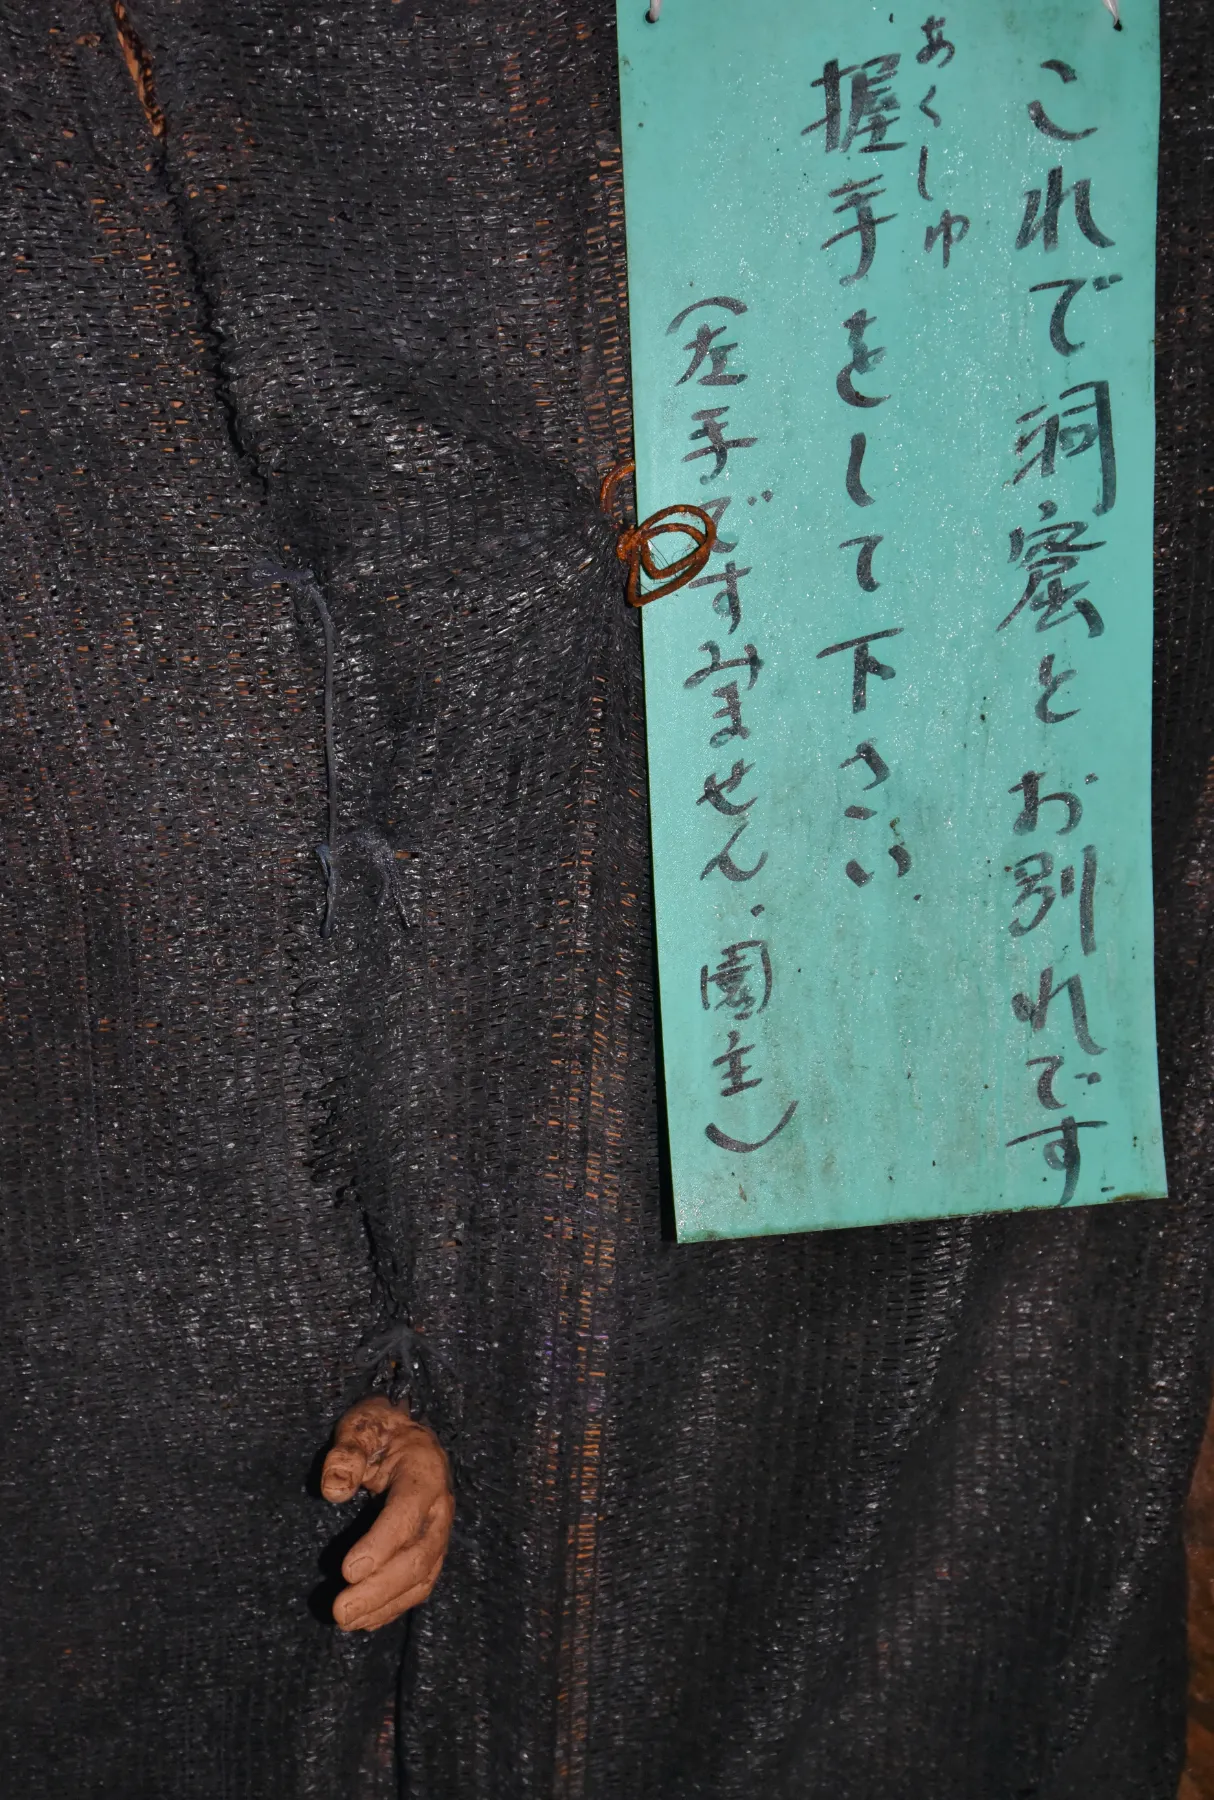 これで洞窟とお別れです
あくしゅ
握手をして下さい
(左手ですみません.園主)